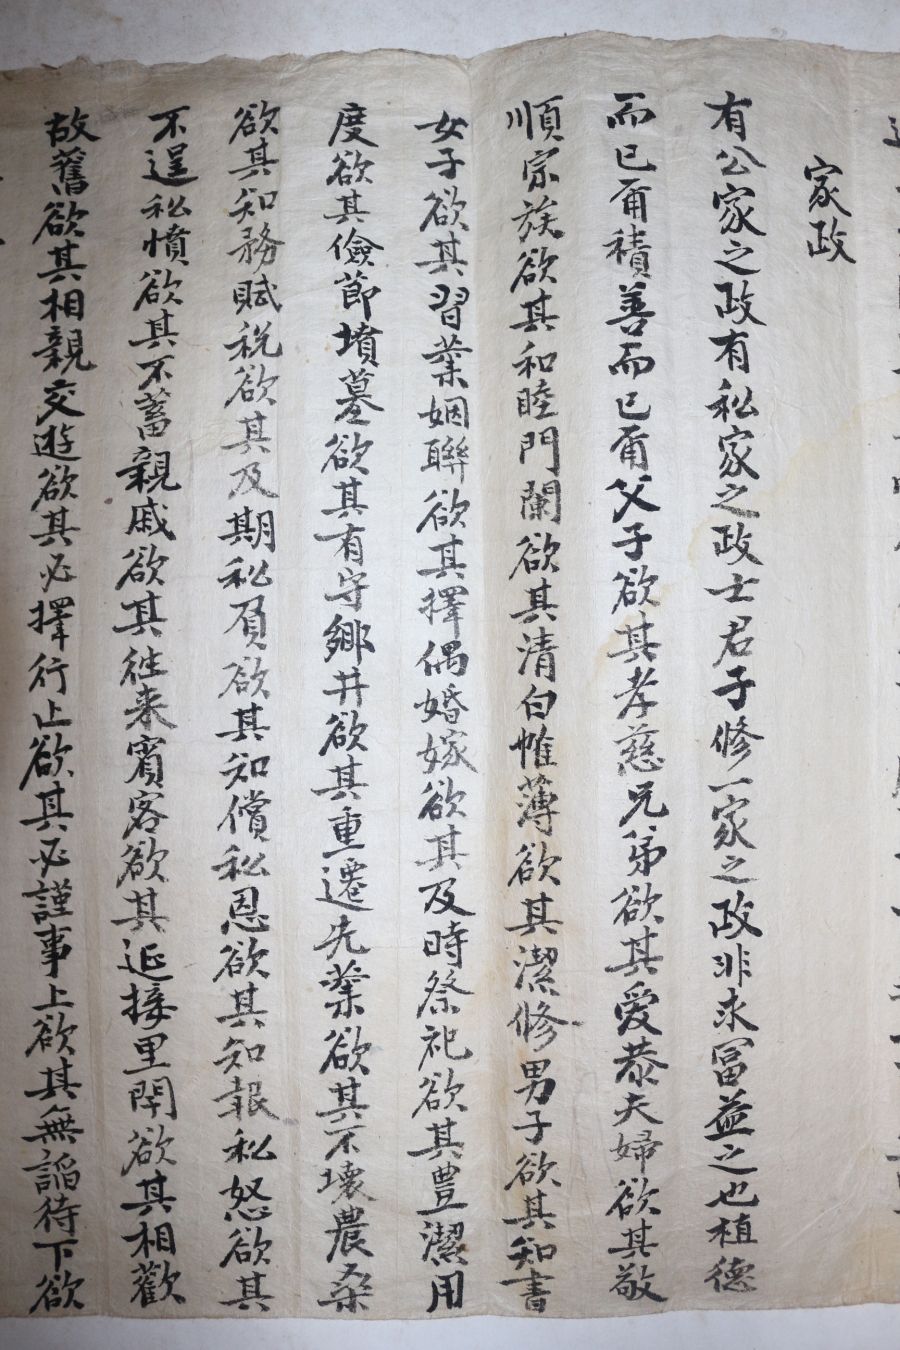 家政
有公家之政有私家之政士君子修一家之政非求冨益之也植德
而已甭積善而已甭父子欲其孝慈兄弟欲其愛恭夫婦欲其敬
順宗族欲其和睦門闌欲其清白帷薄欲其潔修男子欲其知書
女子欲其習業姻聯欲其擇偶婚嫁欲其及時祭祀欲其豊潔用
度欲其儉節墳墓欲其有守鄉井欲其重遷先業欲其不壞農桑
欲其知務賦税欲其及期私負欲其知償私恩欲其知報私怒欲其
不逞私憤欲其不蓄親戚欲其往来賓客欲其延接里閈欲其相歡
故舊欲其相親交遊欲其必擇行止欲其必謹事上欲其無謟待下欲